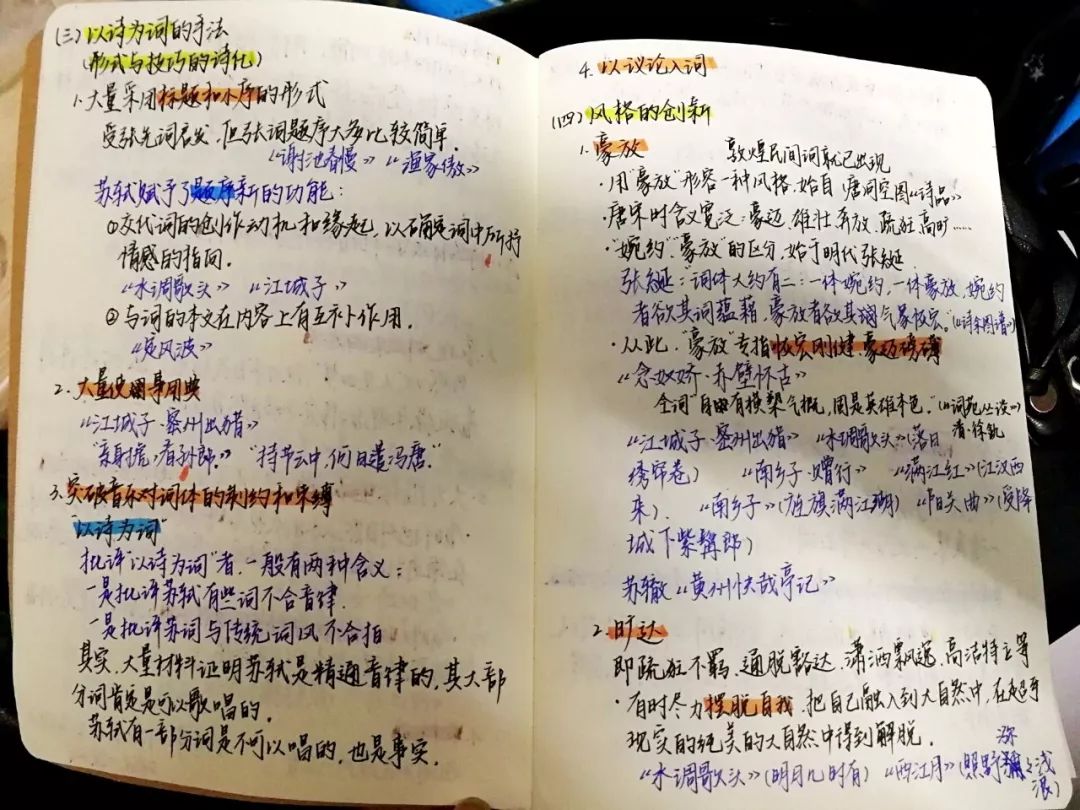 (三)以诗为词的手法
(形式与技巧的诗化)
1.大量采用标题和小序的形式
受张先词启发,但张词题序大多比较简单.
《谢池春慢》《渔家傲》
苏轼赋予了题序新的功能:
①交代词的创作动机和缘起,以确定词中所抒
情感的指向.
《水调歌头》《江城子》
②与词的本文在内容上有互补作用.
《定风波》
2.大量使用事用典
《江城子·密州出猎》
“亲射虎,看孙郎.”“持节云中,何日遣冯唐.”
3.突破音乐对词体的制约和束缚
“以诗为词”
批评“以诗为词”者,一般有两种含义:
一是批评苏轼有些词不合音律.
一是批评苏词与传统词风不合拍
其实,大量材料证明苏轼是精通音律的,其大部
分词肯定是可以歌唱的.
苏轼有一部分词是不可以唱的,也是事实.
4.以议论入词
(四)风格的创新
1.豪放 敦煌民间词就已出现
·用“豪放”形容一种风格,始自唐司空图《诗品》
·唐宋时含义宽泛:豪迈、雄壮、奔放、疏狂、高旷……
·“婉约”“豪放”的区分,始于明代张綖.
张綖:词体大约有二:一体婉约,一体豪放,婉约
者欲其词蕴藉,豪放者欲其气象恢宏.(《诗余图谱》)
·从此,“豪放”专指恢宏刚健、豪迈磅礴
《念奴娇·赤壁怀古》
全词“自有横槊气概,固是英雄本色.”(《词苑丛谈》
清·徐釚
《江城子·密州出猎》《水调歌头》(落日
绣帘卷) 《南乡子·赠行》 《满江红》(江汉西
来). 《南乡子》(旌旗满江湖) 《阳关曲》(受降
城下紫髯郎)
苏辙《黄州快哉亭记》
2.旷达
即疏狂不羁、通脱豁达、潇洒飘逸、高洁特立等
·有时尽力摆脱自我,把自己融入到大自然中,在超乎
现实的纯美的大自然中得到解脱.
《水调歌头》(明月几时有) 《西江月》(照野弥弥浅
浪)